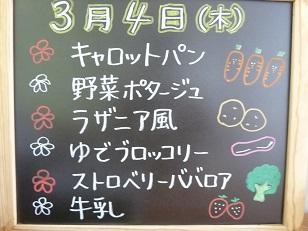 3月4日(木)
キャロットパン
野菜ポタージュ
ラザニア風
ゆでブロッコリー
ストロベリーババロア
牛乳